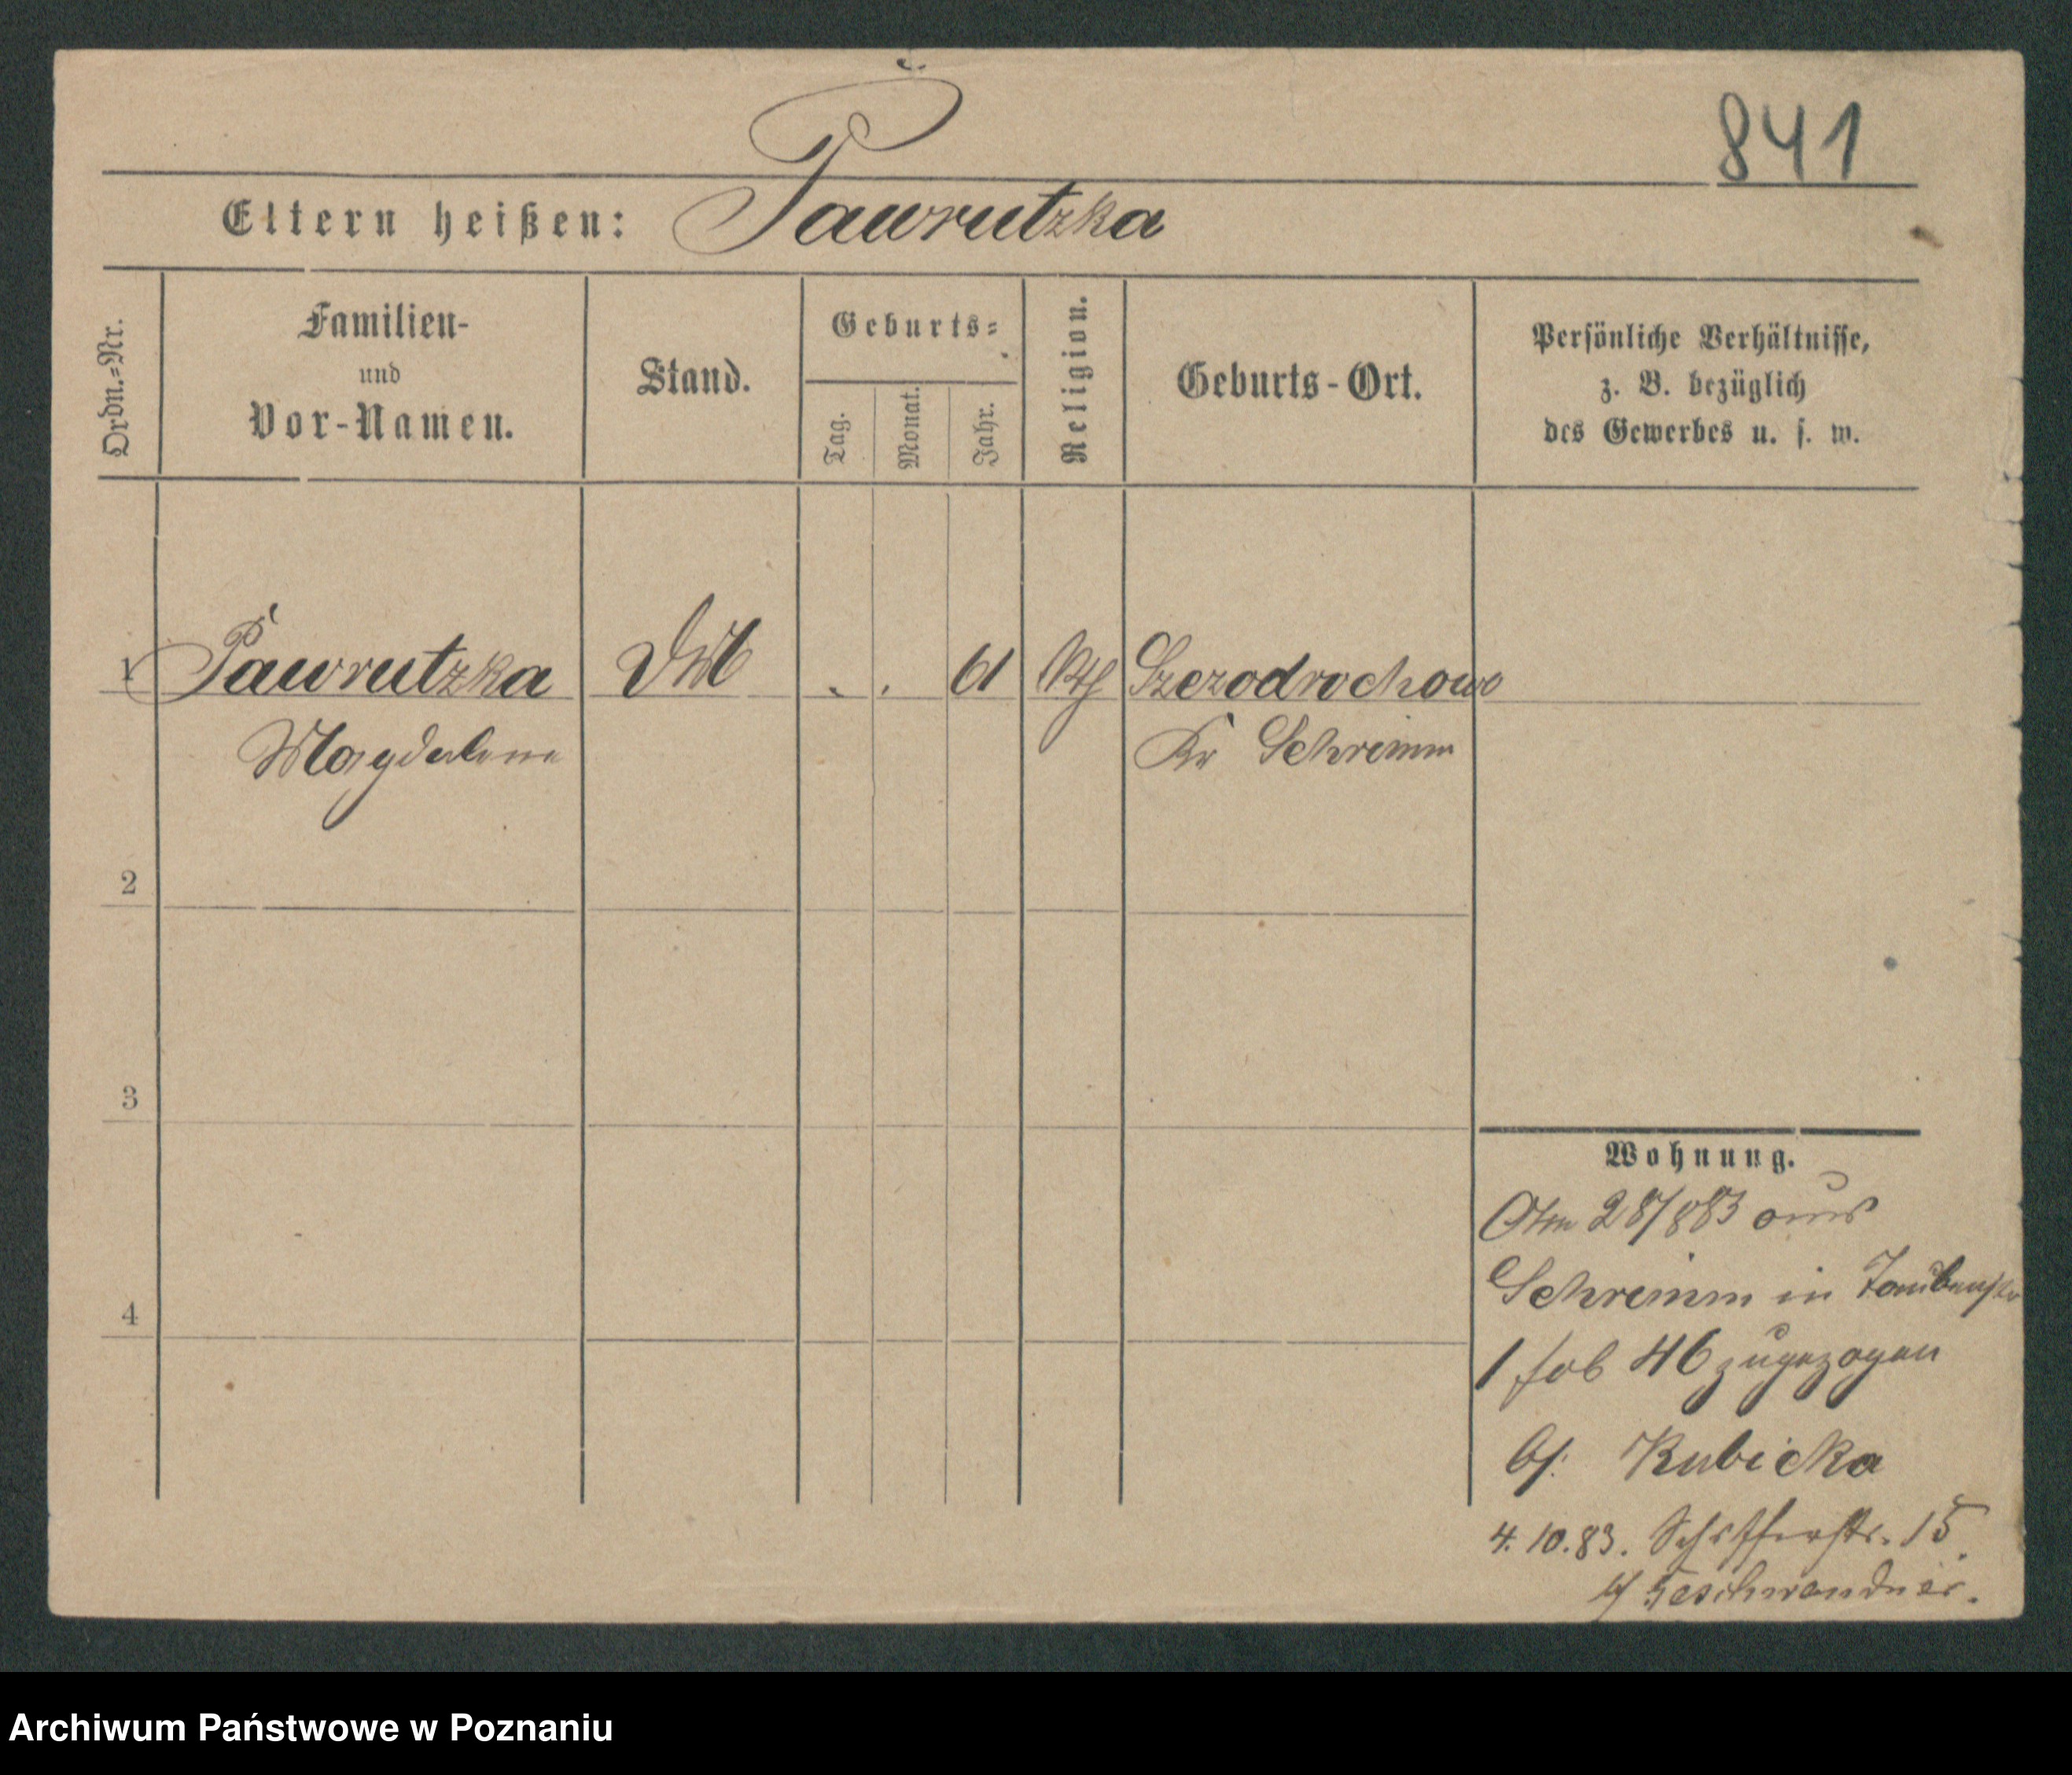 841
Eltern heißen: Pawrutzka
Ordn.=Nr.
Familien-
und
Vor-Namen.
Stand.
Geburts=
Tag.
Monat.
Jahr.
Religion.
Geburts-Ort.
Persönliche Verhältnisse,
z. B. bezüglich
des Gewerbes u. s. w.
1 Pawrutzka . . 61 Kth Szezodrochowo
Magdalena Kr Schrimm
2
3
4
Wohnung.
Am 28/883 aus
Schrimm in Taubenstr
1 fol 46 zugezogen
b/. Kubicka
4.10.83. Schifferstr. 15.
b/ Geschwandner.
Archiwum Państwowe w Poznaniu